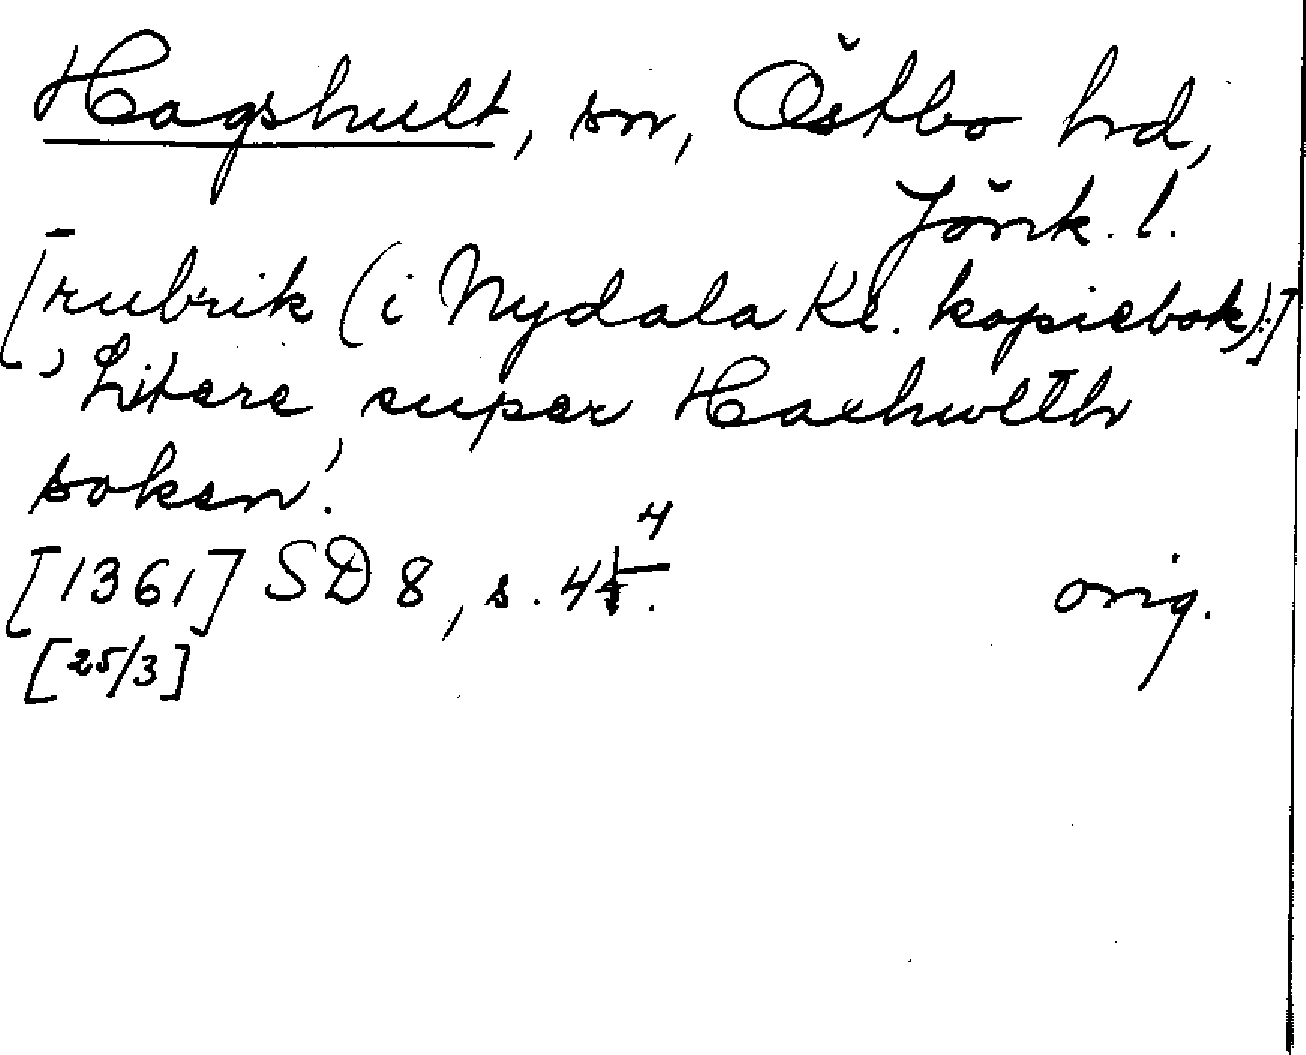 Hagshult, sn, Östbo hd,
Jönk. l.
[rubrik (i Nydala Kl. kopiebok):]
'Litere super Haehwlth
soken'.
4
[1361] SD 8, s. 4. orig.
[25/3]